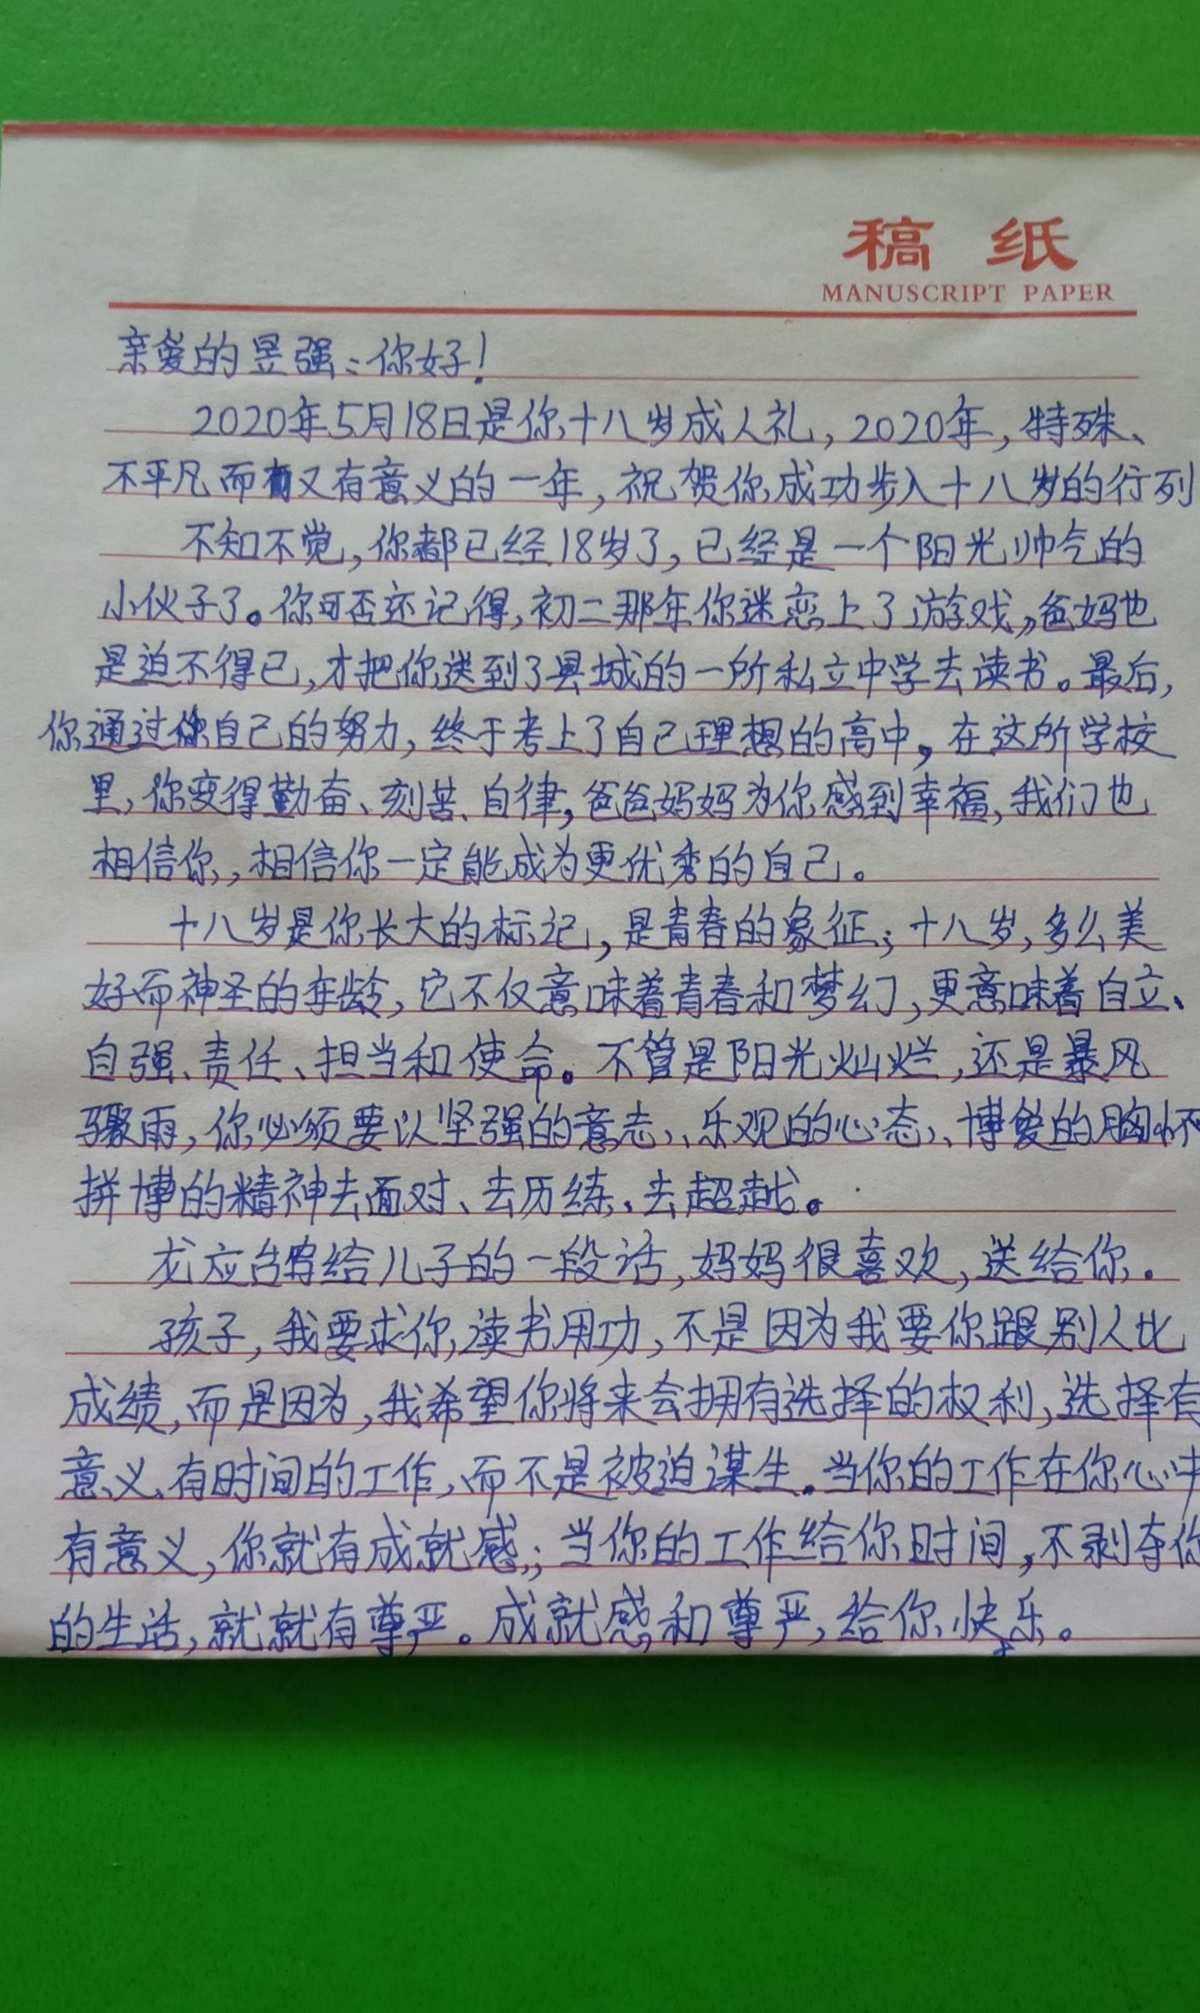 稿 纸
MANUSCRIPT PAPER
亲爱的昱强：你好！
2020年5月18日是你十八岁成人礼，2020年，特殊、
不平凡而又有意义的一年，祝贺你成功步入十八岁的行列
不知不觉，你都已经18岁了，已经是一个阳光帅气的
小伙子了。你可否还记得，初二那年你迷恋上了游戏，爸妈也
是迫不得已，才把你送到了县城的一所私立中学去读书。最后，
你通过你自己的努力，终于考上了自己理想的高中，在这所学校
里，你变得勤奋、刻苦、自律，爸爸妈妈为你感到幸福，我们也
相信你，相信你一定能成为更优秀的自己。
十八岁是你长大的标记，是青春的象征；十八岁，多么美
好而神圣的年龄，它不仅意味着青春和梦幻，更意味着自立、
自强、责任、担当和使命。不管是阳光灿烂，还是暴风
骤雨，你必须要以坚强的意志、乐观的心态、博爱的胸怀
拼博的精神去面对、去历练、去超越。
龙应台写给儿子的一段话，妈妈很喜欢，送给你。
孩子，我要求你读书用功，不是因为我要你跟别人比
成绩，而是因为，我希望你将来会拥有选择的权利，选择有
意义、有时间的工作，而不是被迫谋生。当你的工作在你心中
有意义，你就有成就感；当你的工作给你时间，不剥夺你
的生活，就就有尊严。成就感和尊严，给你快乐。